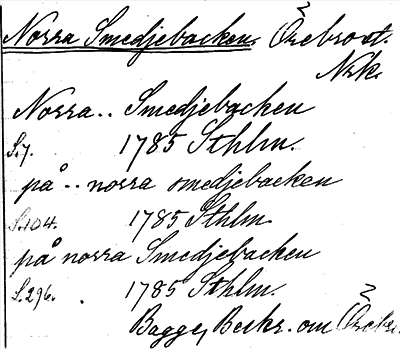 Norra Smedjebacken. Örebro st.
Nrk.
Norra.. Smedjebacken
S.7. 1785 Sthlm.
på.. norra smedjebacken
S.104. 1785 Sthlm.
på norra Smedjebacken
S.296. 1785 Sthlm.
Bagge, Beskr. om Örebro